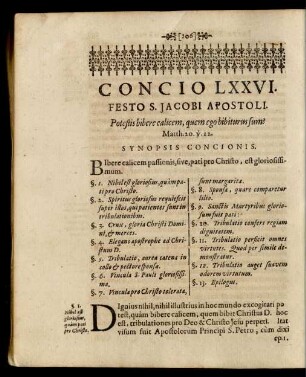 [206]
CONCIO LXXVI.
FESTO S. JACOBI APOSTOLI.
Potestis bibere calicem, quem ego bibiturus sum?
Matth. 20. ℣. 22.
SYNOPSIS CONCIONIS.
BIbere calicem passionis, sive, pati pro Christo, est gloriosissi-
mum.
§. 1. Nihil est gloriosius, quàm pa-
ti pro Christo.
§. 2. Spiritus gloriæ requiescit
super illos, qui patientes sunt in
tribulationibus.
§. 3. Crux, gloria Christi Domi-
ni, & merces.
§. 4. Elegans apostrophe ad Chri-
stum D.
§. 5. Tribulatio, aorta catena in
collo & pectore sponsæ.
§. 6. Vincula S. Pauli gloriosissi-
ma.
§. 7. Vincula pro Christo tolerata,
sunt margarita.
§. 8. Sponsa, quare comparetur
§. 9. Sanctis Martyribus glorio-
sum fuit pati:
§. 10. Tribulatio confers regiam
dignitatem.
§. 11. Tribulatio perficit omnes
virtutes. Quod per simile de-
monstratur.
§. 12. Tribulatio auget suavem
odorem virtutum.
§. 13. Epilogus.
§. 1.
Nihil est
gloriosius,
quàm pati
pro Christo.
DIgnius nihil, nihil illustrius in hoc mundo excogitari po-
test, quàm bibere calicem, quem bibit Christus D. hoc
est, tribulationes pro Deo & Christo Jesu perpeti. Itat
visum fuit Apostolorum Principi S. Petro, cùm dixi
ep. 1.